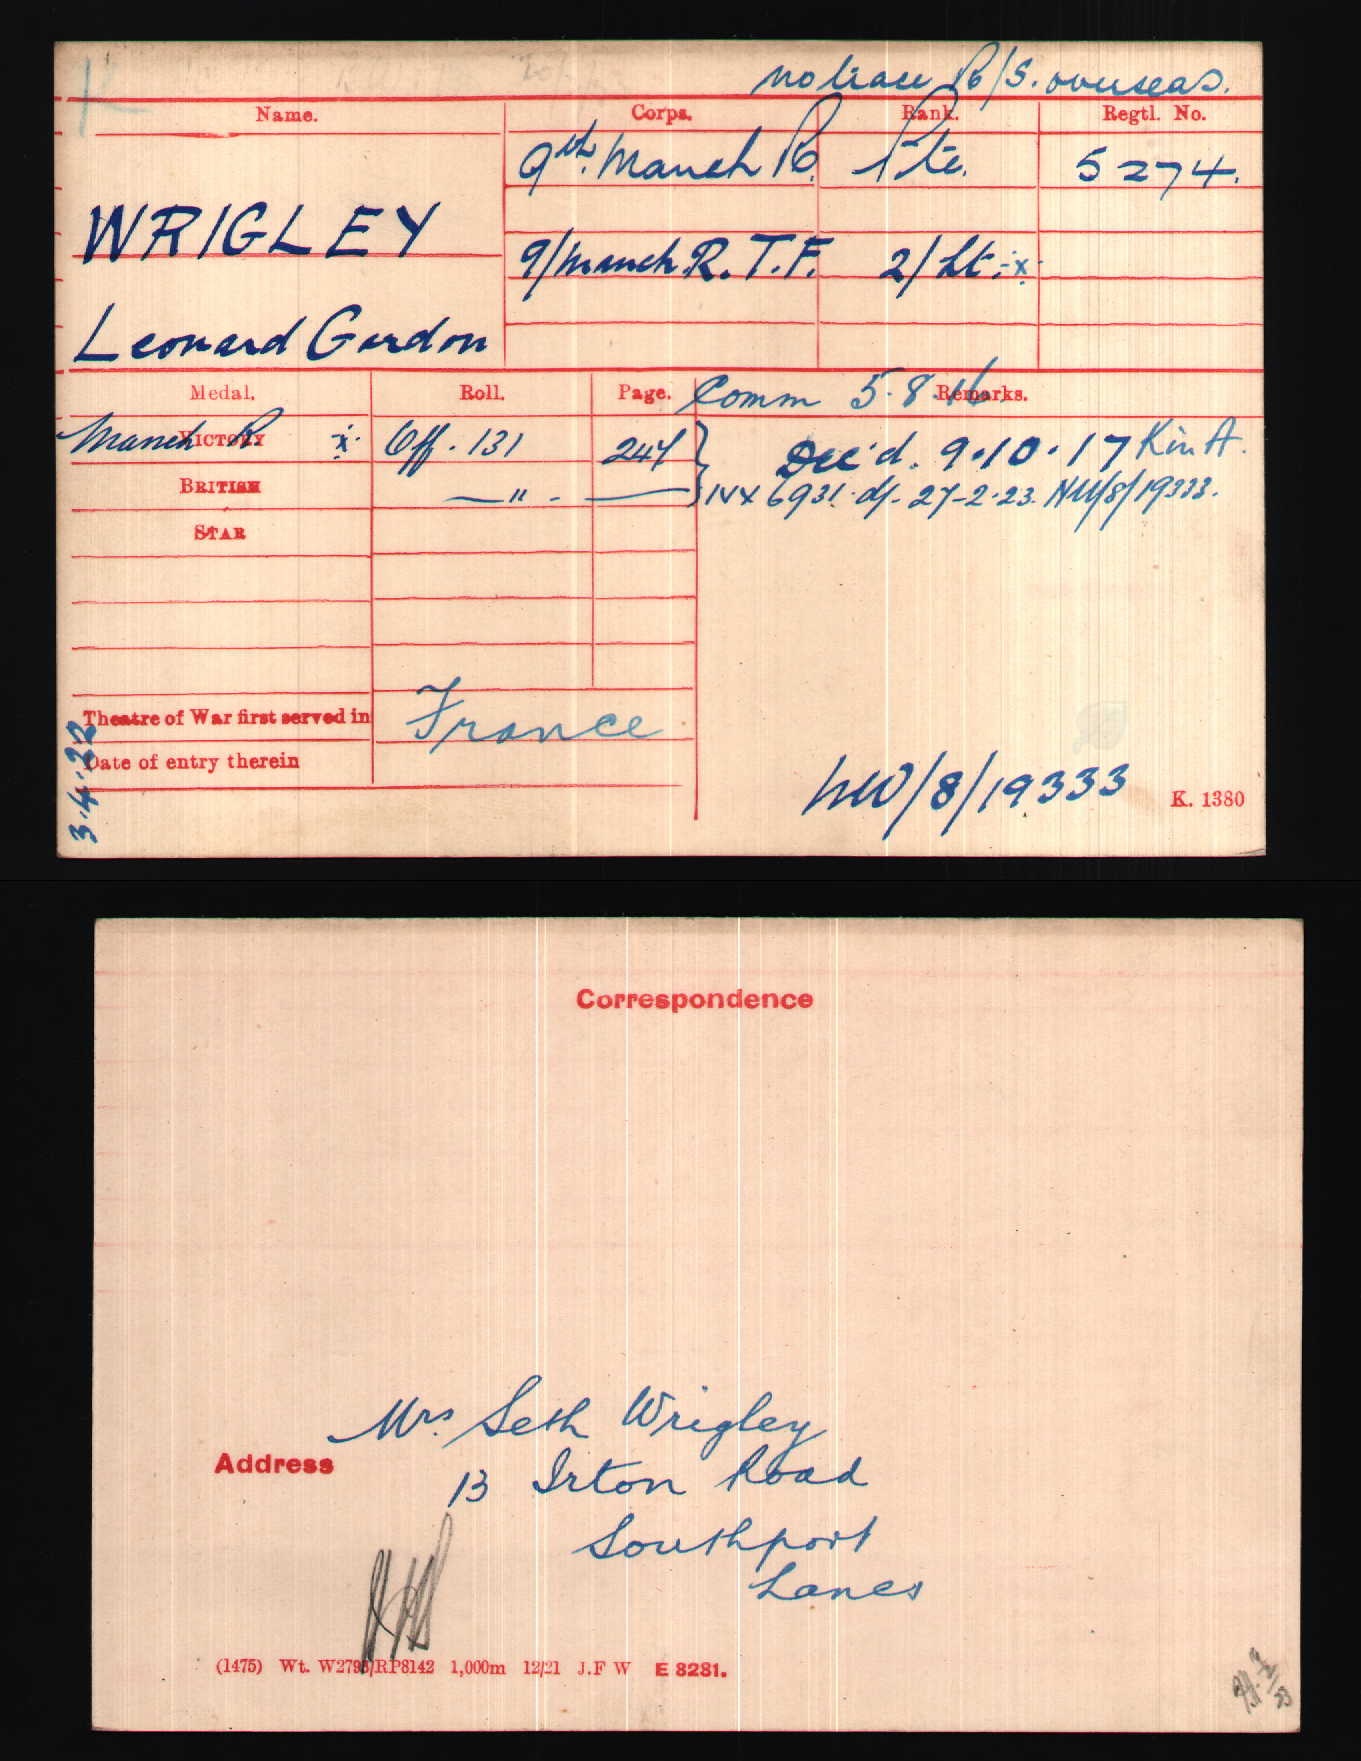 no trace R/S. overseas.
Name. Corps. Rank. Regtl. No.
9th. Manch R. Pte. 5274.
WRIGLEY
9/Manch. R. T.F. 2/Lt. x
Leonard Gordon
Medal. Roll. Page. Remarks.
Comm 5.8.16
VICTORY Manch R. x Off. 131 247 Dec'd. 9.10.17 K in A.
BRITISH — " — IVX 6931. d/- 27-2-23. NW/8/19333.
STAR
Theatre of War first served in France
Date of entry therein
3.4.22
NW/8/19333 K. 1380
Correspondence
Mrs. Seth Wrigley
Address
13 Irton Road
Southport
Lancs
(1475) Wt. W2795/RP8142 1,000m 12/21 J.F W E 8281.